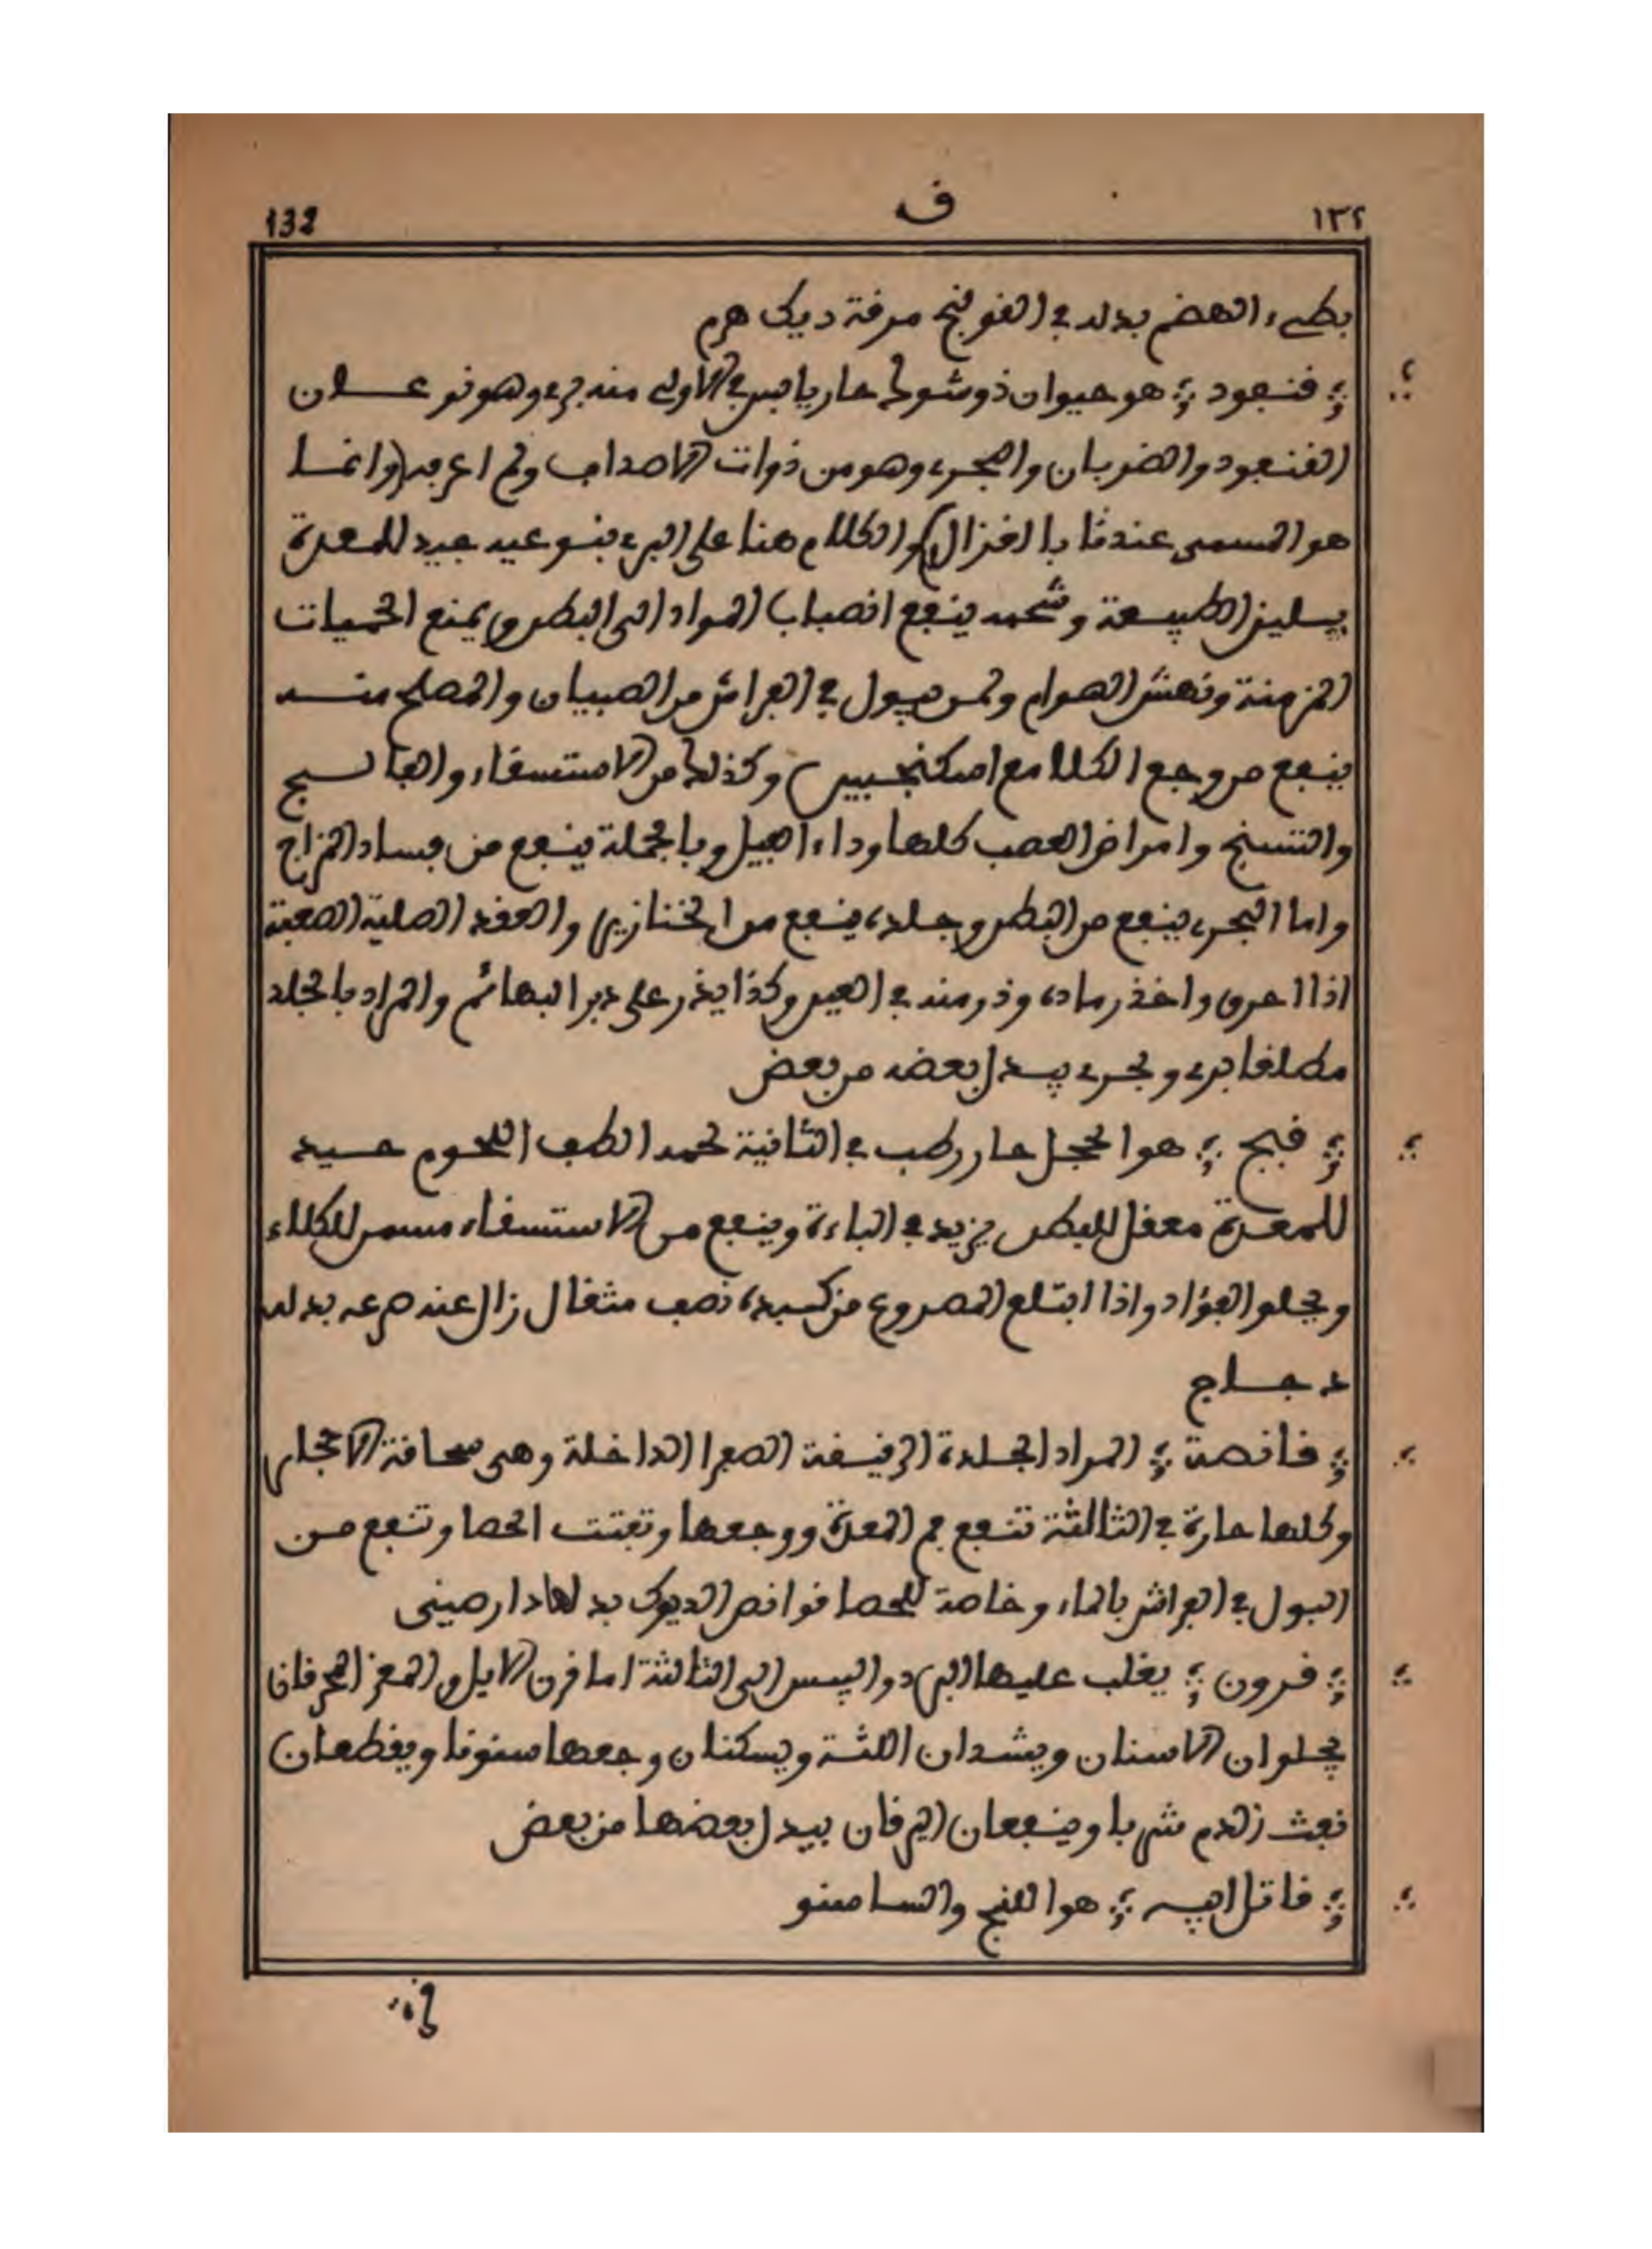 ١٣٢ ق 132
بطيء الهضم بدله في القولنج مرقة ديك هرم
؞ قنفود ؞ هو حيوان ذو شوك حار يابس في الاولى منه بري وهو نوعان
القنفود والضربان والبحري وهو من ذوات الاصداف ولم اعرفه (وانما
هو المسمى عندنا بالغزال) والكلام هنا على البري بنوعيه جيد للمعدة
يسلين الطبيعة وشحمه ينفع انصباب المواد الى البطن ويمنع الحميات
المزمنة ونهش الهوام ولمن يبول في الفراش من الصبيان والمملح منه
ينفع من وجع الكلا مع اسكنجبين وكذلك من الاستسقاء والفالج
والتشنج وامراض العصب كلها وداء الفيل وبالجملة ينفع من فساد المزاج
واما البحري ينفع من البطن وجلده ينفع من الخنازير والعقد الصلبة الصعبة
اذا احرق واخذ رماده وذر منه في العين وكذا يذر على دبر البهائم والمراد بالجلد
مطلقا بري وبحري يبدل بعضه من بعض
؞ قبج ؞ هو الحجل حار رطب في الثانية لحمه الطف اللحوم جيد
للمعدة معقل للبطن يزيد في الباءة وينفع من الاستسقاء مسمن للكلاء
ويجلو الفؤاد واذا ابتلع المصروع من كبده نصف مثقال زال عنه صرعه بدله
دجاج
؞ قانصة ؞ المراد الجلدة الرقيقة الصفرا الداخلة وهي سحافة الانجلس
وكلها حارة في الثالثة تنفع فم المعدة ووجعها وتفتت الحصا وتنفع من
البول في الفراش بالماء وخاصة للحصا قوانص الديوك بدلها دارصيني
؞ قرون ؞ يغلب عليها البرد واليبس الى الثالثة اما قرن الايل والمعز المحرقان
يجلوان الاسنان ويشدان اللثة ويسكنان وجعها سنونا ويقطعان
نفث الدم شربا وينفعان اليرقان يبدل بعضها من بعض
؞ قاتل ابيه ؞ هو اللنج والساسنو